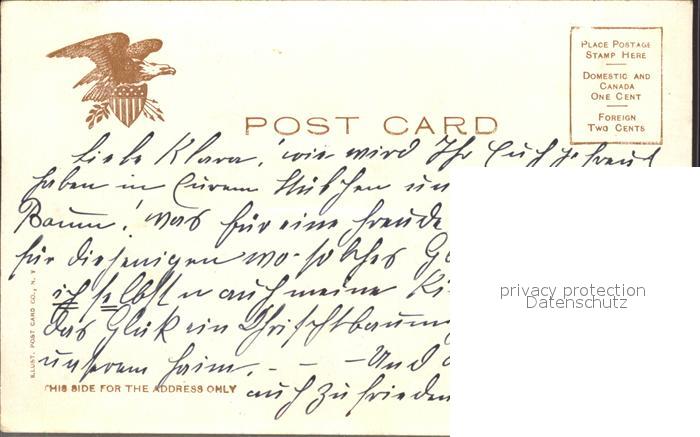 PLACE POSTAGE
STAMP HERE
DOMESTIC AND
CANADA
ONE CENT
FOREIGN
TWO CENTS
POST CARD
Liebe Klara! wie wird Ihr Euch gefreut
haben in Eurem Stübchen un
Baum! was für eine Freude
für diejenigen wo solches G
ich selbst u auch meine Ki
das Glük ein Christbaum
unserem Heim. - - - Und
auch zufrieden
privacy protection
Datenschutz
ILLUST. POST CARD CO., N. Y.
THIS SIDE FOR THE ADDRESS ONLY